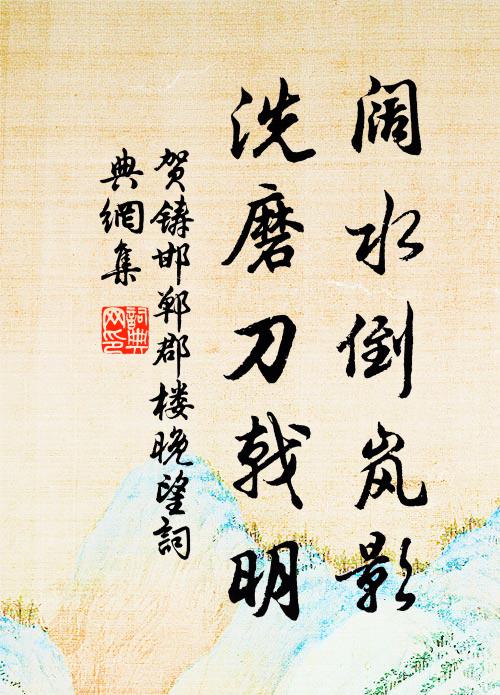 阔水倒岚影
洗磨刀戟明
贺铸邯郸郡楼晚望詞
典網集
詞典
网印